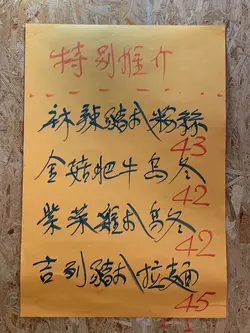 特别推介
麻辣豬扒粉絲
43
金菇肥牛烏冬
42
紫菜雞扒烏冬
42
吉列豬扒拉麵
45